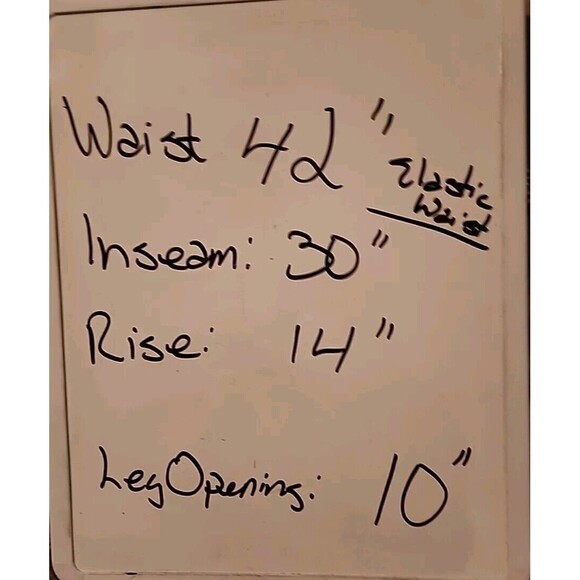 Waist 42" Elastic
Waist
Inseam: 30"
Rise: 14"
Leg Opening: 10"